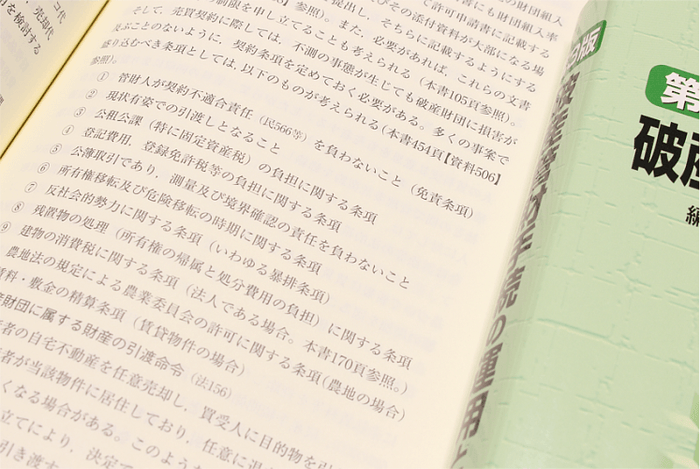 コ代
売却代
を検討する
許可申請書にも財団組入
参照）。また、必要があれば、これらの文書
制限を申し立てることも考えられる（本書105頁参照）。
そして、売買契約に際しては、不測の事態が生じても破産財団に損害が
及ぶことのないように、契約条項を定めておく必要がある。多くの事案で
盛り込むべき条項としては、以下のものが考えられる（本書454頁【資料506】
参照）。
① 管財人が契約不適合責任（民566等）を負わないこと（免責条項）
② 現状有姿での引渡しとなること
③ 公租公課（特に固定資産税）の負担に関する条項
④ 登記費用、登録免許税等の負担に関する条項
⑤ 公簿取引であり、測量及び境界確認の責任を負わないこと
⑥ 所有権移転及び危険移転の時期に関する条項
⑦ 反社会的勢力に関する条項（いわゆる暴排条項）
⑧ 残置物の処理（所有権の帰属と処分費用の負担）に関する条項
⑨ 建物の消費税に関する条項（法人である場合。本書170頁参照。）
農地法の規定による農業委員会の許可に関する条項（農地の場合）
料・敷金の精算条項（賃貸物件の場合）
財団に属する財産の引渡命令（法156）
者の自宅不動産を任意売却し、買受人に目的物を引
者が当該物件に居住しており、任意に退
くなる場合がある。このような
立てにより、決定で
引き渡す
版
第
破産
編
手続の運用